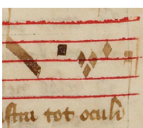 stra tot oculi